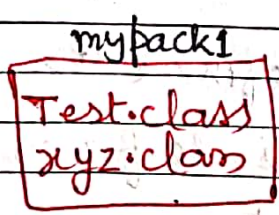 mypack1
Test.class
xyz.class